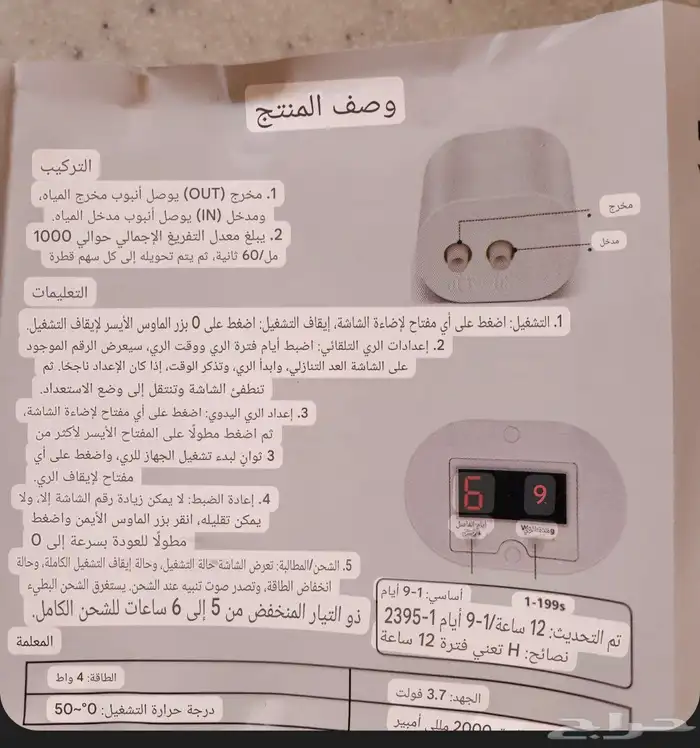 وصف المنتج
التركيب
1. مخرج (OUT) يوصل أنبوب مخرج المياه،
ومدخل (IN) يوصل أنبوب مدخل المياه.
2. يبلغ معدل التفريغ الإجمالي حوالي 1000
مل/60 ثانية، ثم يتم تحويله إلى كل سهم قطرة
مخرج
مدخل
التعليمات
1. التشغيل: اضغط على أي مفتاح لإضاءة الشاشة، إيقاف التشغيل: اضغط على 0 بزر الماوس الأيسر لإيقاف التشغيل.
2. إعدادات الري التلقائي: اضبط أيام فترة الري ووقت الري، سيعرض الرقم الموجود
على الشاشة العد التنازلي، وابدأ الري، وتذكر الوقت، إذا كان الإعداد ناجحًا. ثم
تنطفئ الشاشة وتنتقل إلى وضع الاستعداد.
3. إعداد الري اليدوي: اضغط على أي مفتاح لإضاءة الشاشة،
ثم اضغط مطولًا على المفتاح الأيسر لأكثر من
3 ثوانٍ لبدء تشغيل الجهاز للري، واضغط على أي
مفتاح لإيقاف الري.
4. إعادة الضبط: لا يمكن زيادة رقم الشاشة إلا، ولا
يمكن تقليله، انقر بزر الماوس الأيمن واضغط
مطولًا للعودة بسرعة إلى 0
5. الشحن/المطالبة: تعرض الشاشة حالة التشغيل، وحالة إيقاف التشغيل الكاملة، وحالة
انخفاض الطاقة، وتصدر صوت تنبيه عند الشحن. يستغرق الشحن البطيء
ذو التيار المنخفض من 5 إلى 6 ساعات للشحن الكامل.
6 9
أيام الفاصل
1-199s
أساسي: 1-9 أيام
تم التحديث: 12 ساعة/1-9 أيام 1-2395
نصائح: H تعني فترة 12 ساعة
المعلمة
الطاقة: 4 واط
الجهد: 3.7 فولت
درجة حرارة التشغيل: 0°~50
2000 مللي أمبير
حراج